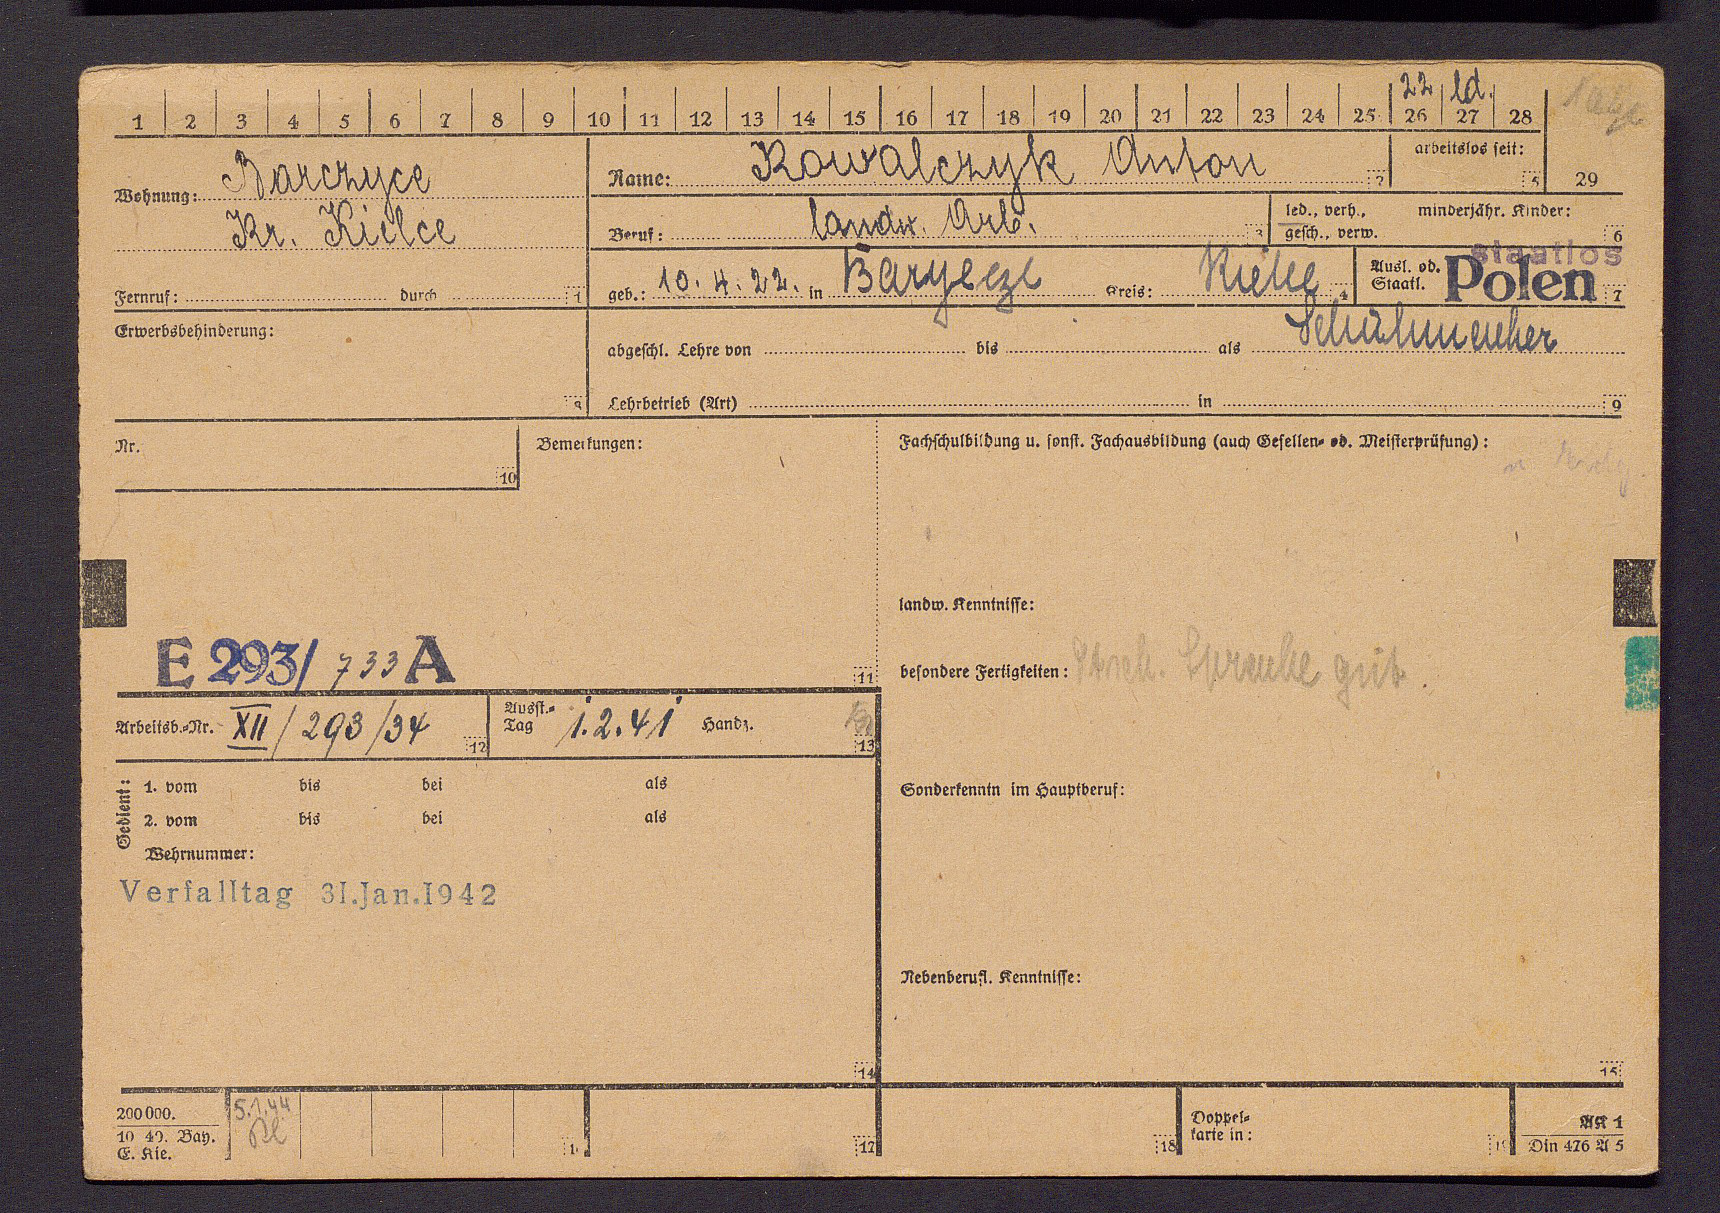 22 ld.
1 2 3 4 5 6 7 8 9 10 11 12 13 14 15 16 17 18 19 20 21 22 23 24 25 26 27 28 29
Wohnung: Barczyce
Kr. Kielce
Fernruf: durch 1
Name: Kowalczyk Anton 2
arbeitslos seit: 5
Beruf: landw. Arb. 3
led., verh., minderjähr. Kinder:
gesch., verw. 6
geb.: 10.4.22. in Baryczc Kreis: Kielce 4
staatlos
Ausl. od. Staatl. Polen 7
Erwerbsbehinderung: 8
abgeschl. Lehre von bis als Schuhmacher
Lehrbetrieb (Art) in 9
Nr. 10
Bemerkungen:
E 293/ 733 A
11
Fachschulbildung u. sonst. Fachausbildung (auch Gesellen- od. Meisterprüfung):
landw. Kenntnisse:
besondere Fertigkeiten: Sprache gut.
Sonderkenntn im Hauptberuf:
Nebenberufl. Kenntnisse:
15
Arbeitsb.-Nr. XII/293/34 12
Ausst.-Tag 1.2.41 Handz. 13
Gedient:
1. vom bis bei als
2. vom bis bei als
Wehrnummer:
Verfalltag 31.Jan.1942
14
200 000.
10 40. Bay.
E. Kie.
5.1.44
17
18
Doppel-
karte in:
19
AK 1
Din 476 A 5